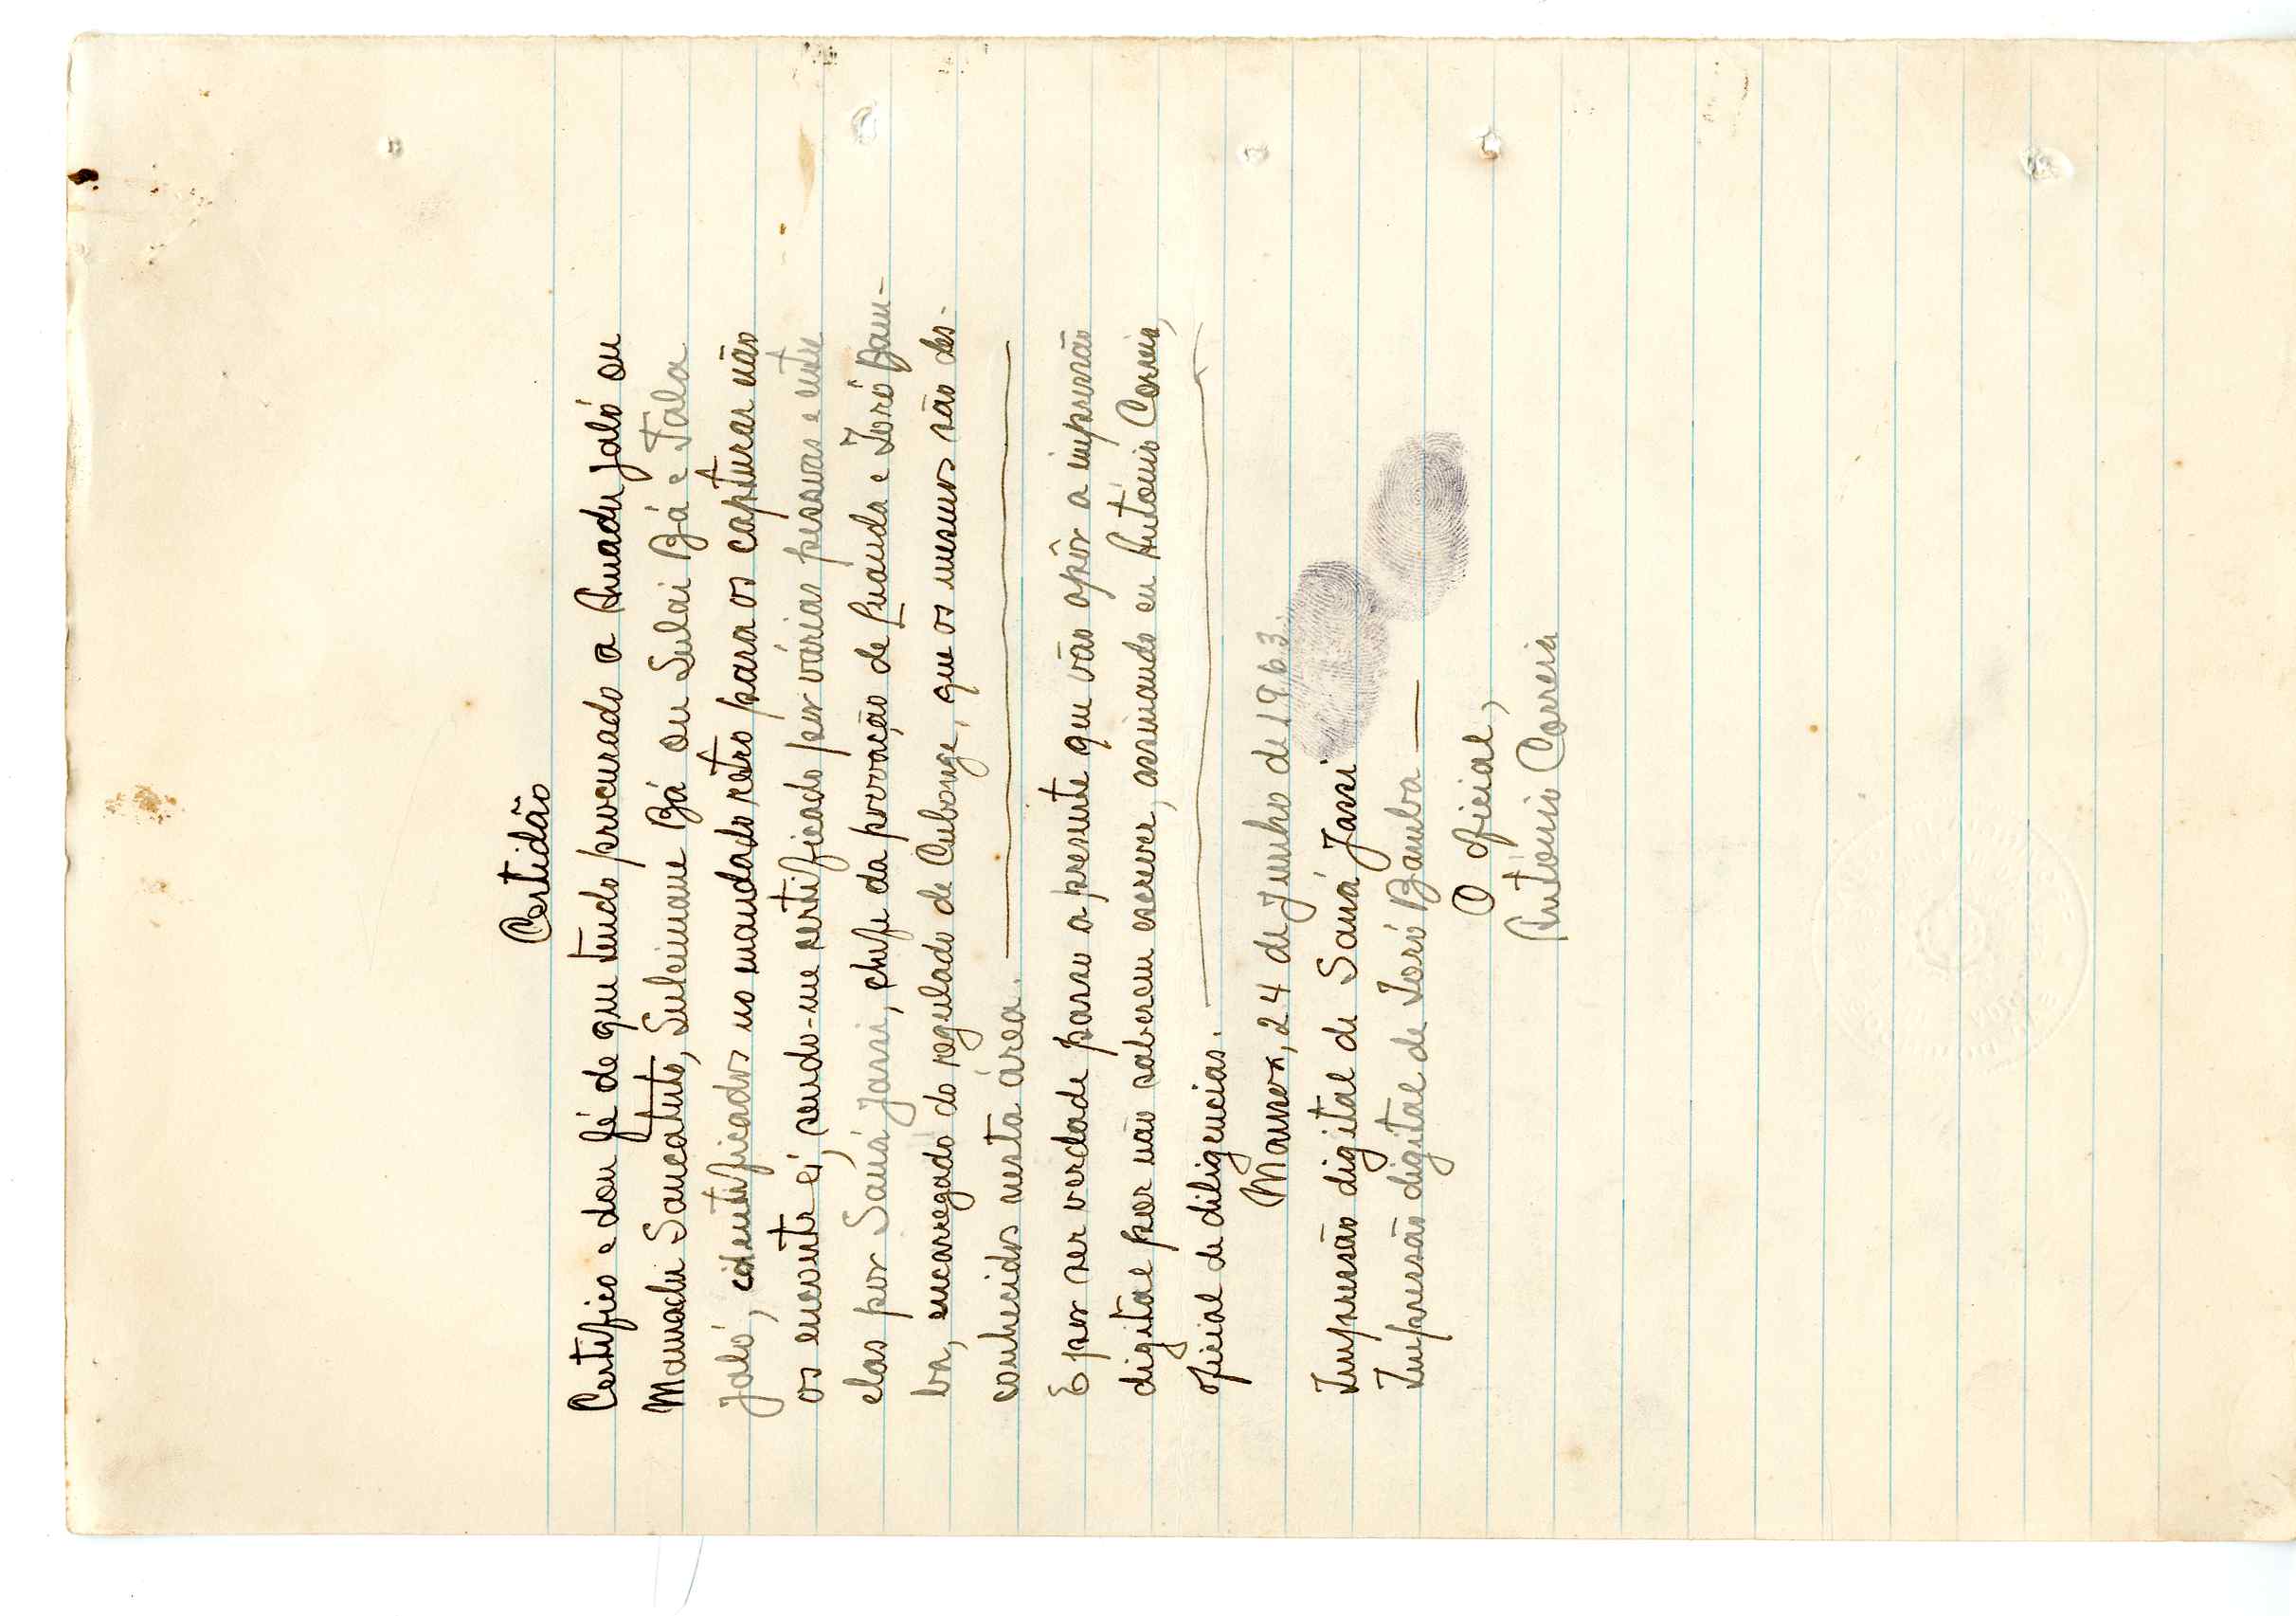 Certidão
Certifico e dou fé de que tendo procurado a Amadu Jaló ou
Mamadu Sancatuto, Suleimane Bá ou Sulai Bá e Tala
Jaló, identificados no mandado retro para os capturar não
os encontrei, sendo-me certificado por várias pessoas e entre
elas por Saná Jassi, chefe da povoação de Luanda e Ioró Bam-
ba, encarregado do regulado de Cubonge, que os mesmos são des-
conhecidos nesta área.
E por ser verdade passo a presente que vão opôr a impressão
digital por não saberem escrever, assinando eu António Correia,
oficial de diligencias.
Mansoa, 24 de Junho de 1963.
Impressão digital de Saná Jassi
Impressão digital de Ioró Bamba
O oficial,
António Correia